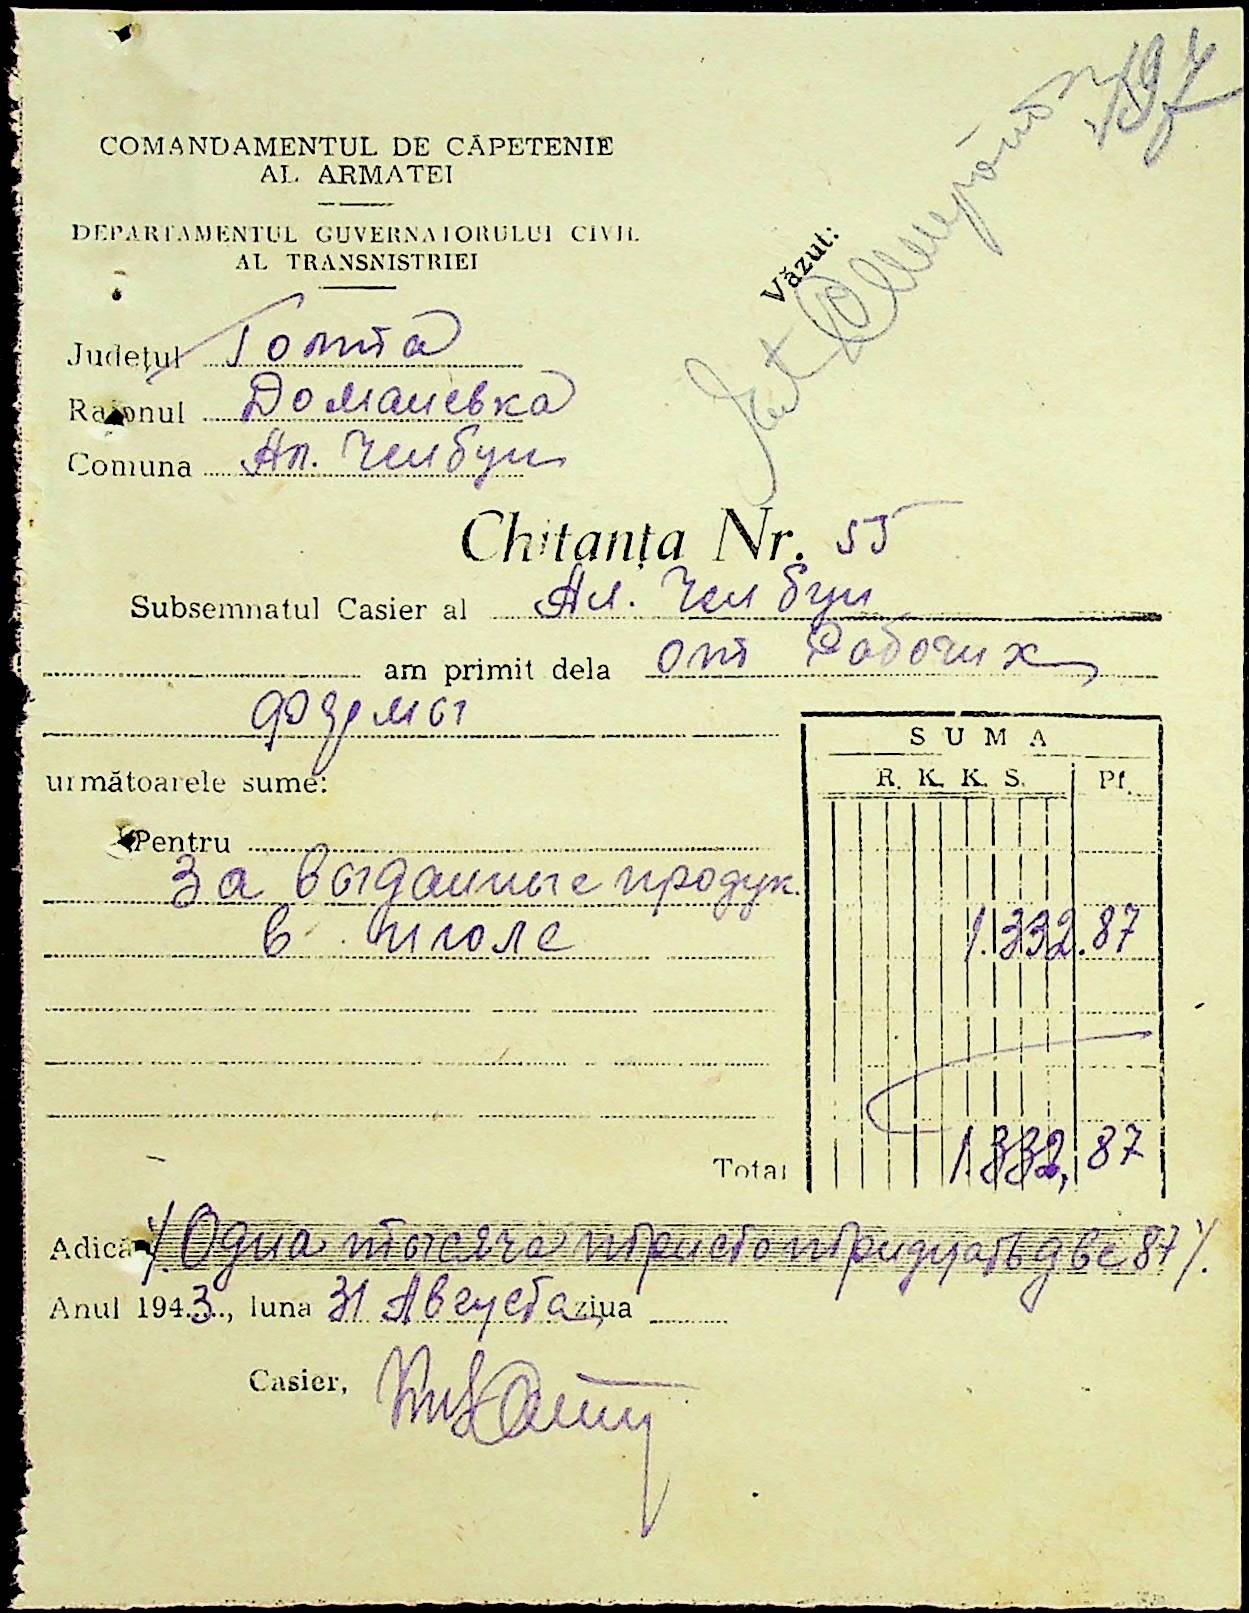 197
COMANDAMENTUL DE CĂPETENIE
AL ARMATEI
DEPARTAMENTUL GUVERNATORULUI CIVIL
AL TRANSNISTRIEI
Văzut:
Județul Голта
Raionul Доманевка
Comuna Ал. Челбун
Chitanța Nr. 55
Subsemnatul Casier al Ал. Челбун
am primit dela от Рабочих
фермы
următoarele sume:
SUMA
R. K. K. S. Pf.
Pentru
За выданные продук.
в июле 1.332.87
Total 1.332,87
Adică /. Одна тысяча тристо тридцать две 87 /.
Anul 1943, luna 31 Августа, ziua
Casier,